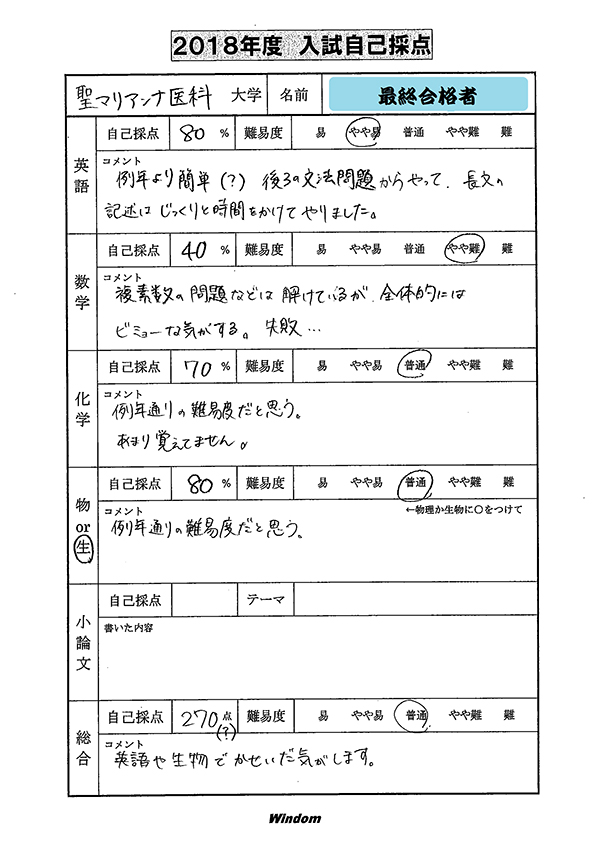 2018年度 入試自己採点
聖マリアンナ医科 大学 名前 最終合格者
英語
自己採点 80 % 難易度 易 やや易 普通 やや難 難
コメント
例年より簡単(?) 後ろの文法問題からやって、長文の
記述はじっくりと時間をかけてやりました。
数学
自己採点 40 % 難易度 易 やや易 普通 やや難 難
コメント
複素数の問題などは解けているが、全体的には
ビミョーな気がする。失敗…
化学
自己採点 70 % 難易度 易 やや易 普通 やや難 難
コメント
例年通りの難易度だと思う。
あまり覚えてません。
物or生
自己採点 80 % 難易度 易 やや易 普通 やや難 難
コメント ←物理か生物に〇をつけて
例年通りの難易度だと思う。
小論文
自己採点 テーマ
書いた内容
総合
自己採点 270点(?) 難易度 易 やや易 普通 やや難 難
コメント
英語や生物でかせいだ気がします。
Windom